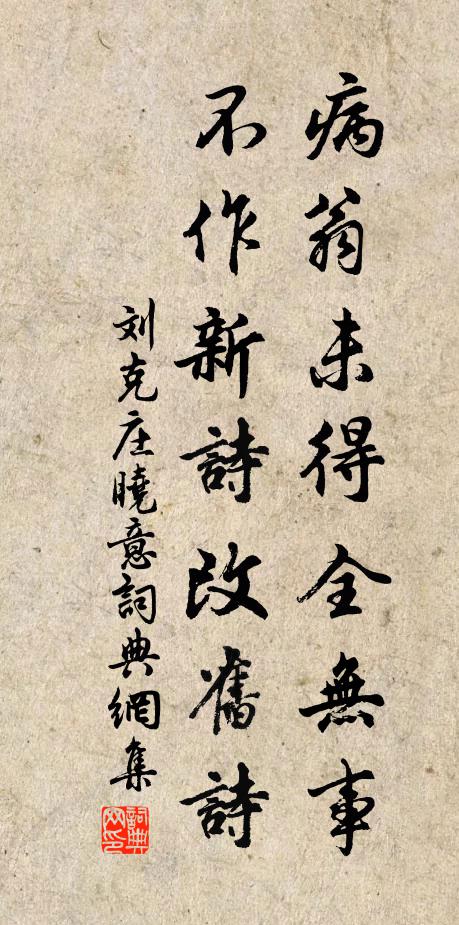 病翁未得全無事
不作新詩改舊詩
刘克庄曉意詞典網集
詞典網印